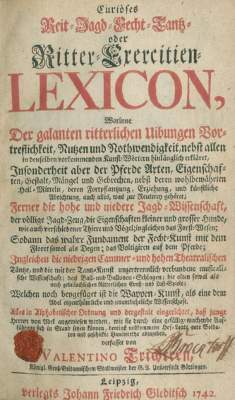 Curiöses
Reit-Jagd-Fecht-Tantz-
oder
Ritter-Exercitien-
LEXICON,
Worinne
Der galanten ritterlichen Uibungen Vor-
treflichkeit, Nutzen und Nothwendigkeit, nebst allen
in denselben vorkommenden Kunst-Wörtern hinlänglich erkläret,
Insonderheit aber der Pferde Arten, Eigenschaf-
ten, Gestalt, Mängel und Gebrechen, nebst deren wohlbewährten
Heil-Mitteln, deren Fortpflantzung, Erziehung, und künstliche
Abrichtung, auch alles, was zur Reuterey gehöret;
Ferner die hohe und niedere Jagd-Wissenschaft,
der völlige Jagd-Zeug, die Eigenschaften kleiner und grosser Hunde,
wie auch verschiedener Thiere und Vögel, ingleichen das Forst-Wesen;
Sodann das wahre Fundament der Fecht-Kunst mit dem
Floret sowol als Degen; das Voltigiren auf dem Pferde;
Ingleichen die niedrigen Cammer- und hohen Theatralischen
Täntze, und die mit der Tantz-Kunst
Wissenschaft; das Ball- und
noch gebräuchlichen Ritterlichen und Lust-Spiele;
Welchen noch beygefüget ist die Wappen-Kunst, als eine dem
Adel und unentbehrliche Wissenschaft,
Alles in Alphabetischer Ordnung und dergestalt eingerichtet, daß junge
Herren vom Adel
verfasset von
VALENTINO Trichtern,
Königl. Groß-Britannischen Stallmeister der G. A. Universität Göttingen.
Leipzig,
verlegts Johann Friedrich Gleditsch 1742.